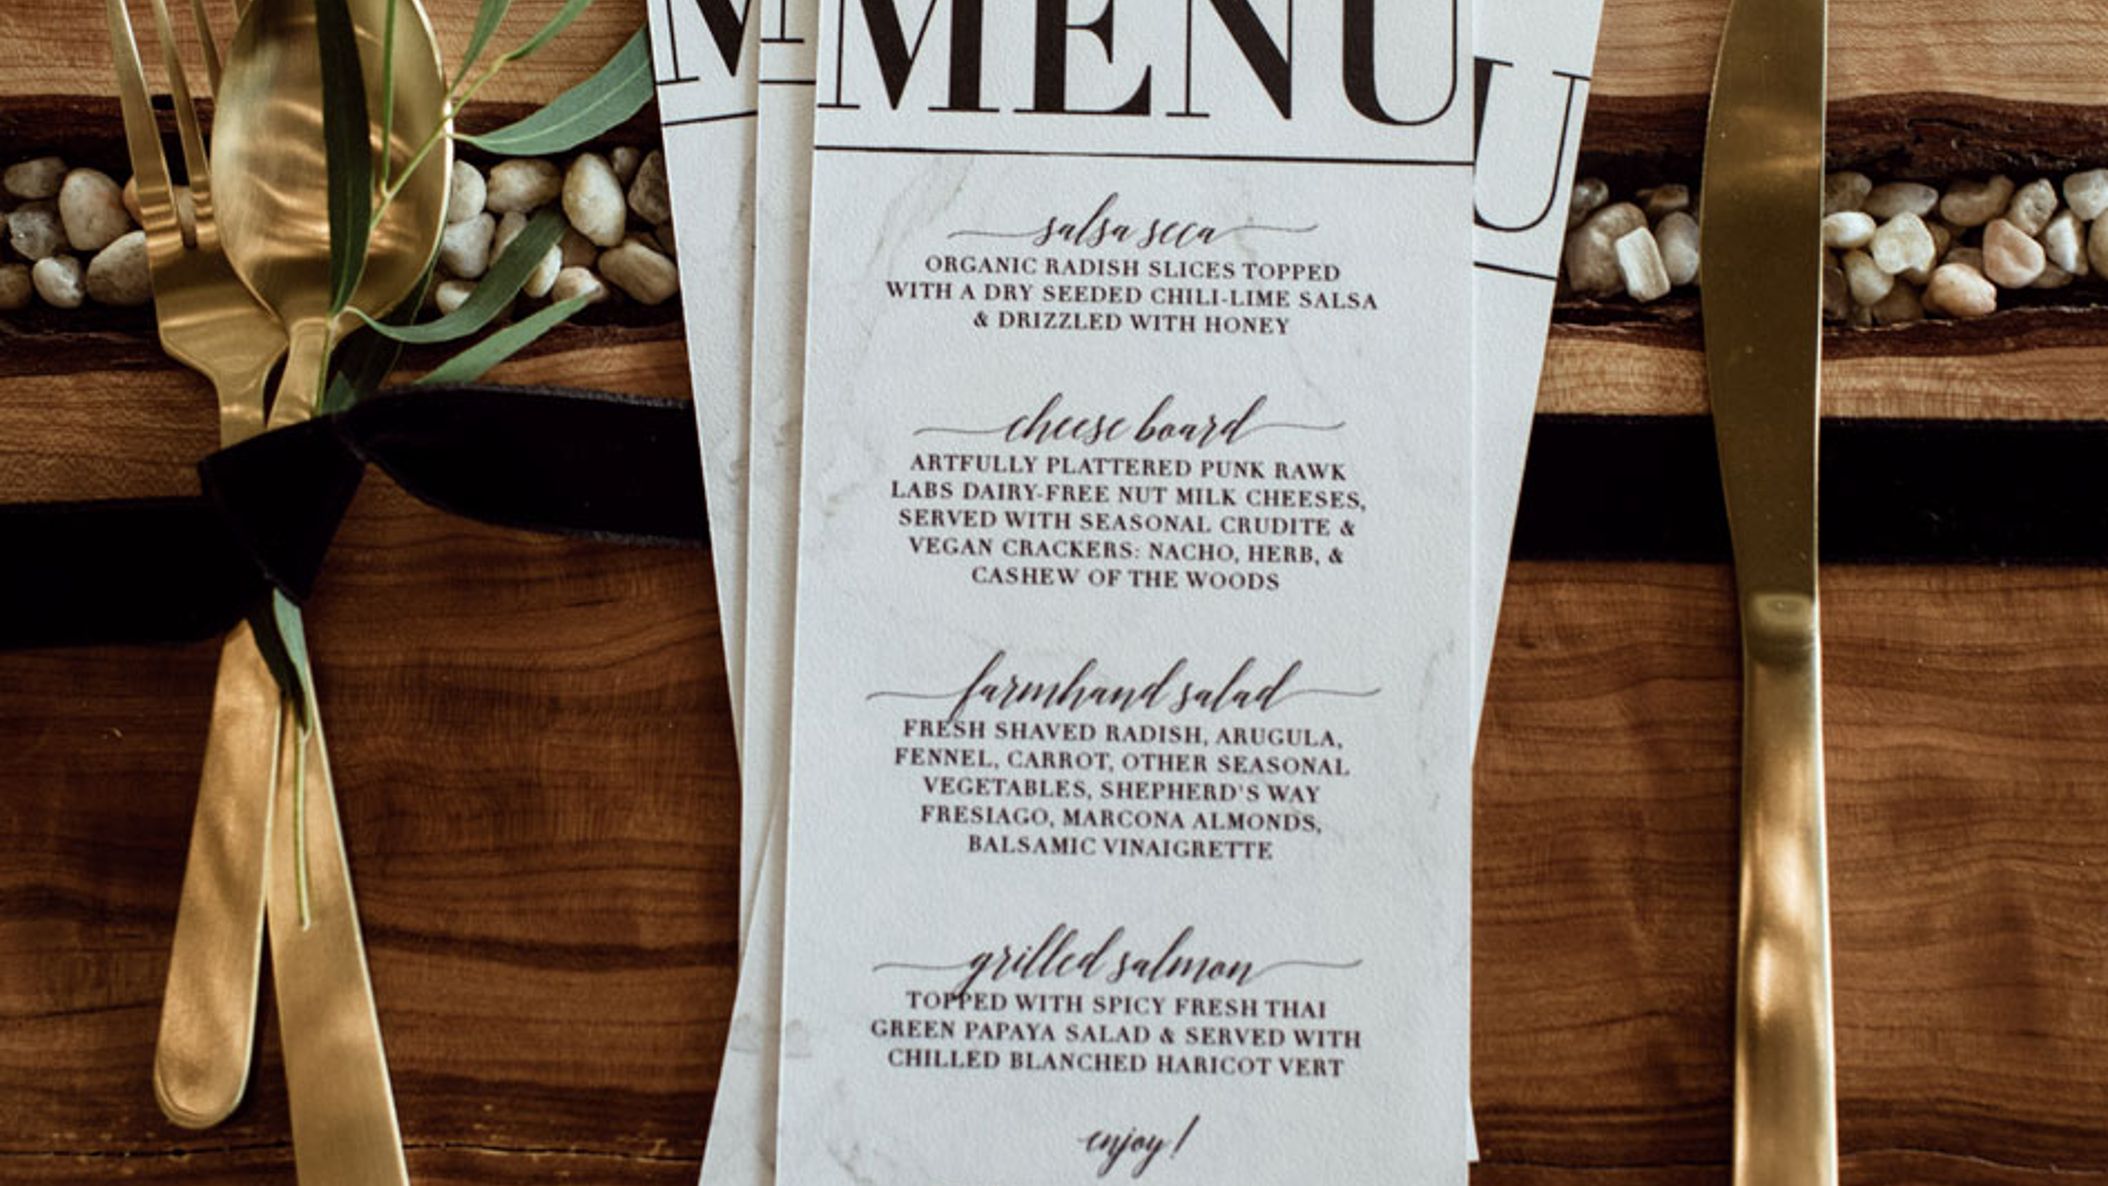 MENU
salsa seca
ORGANIC RADISH SLICES TOPPED
WITH A DRY SEEDED CHILI-LIME SALSA
& DRIZZLED WITH HONEY
cheese board
ARTFULLY PLATTERED PUNK RAWK
LABS DAIRY-FREE NUT MILK CHEESES,
SERVED WITH SEASONAL CRUDITE &
VEGAN CRACKERS: NACHO, HERB, &
CASHEW OF THE WOODS
farmhand salad
FRESH SHAVED RADISH, ARUGULA,
FENNEL, CARROT, OTHER SEASONAL
VEGETABLES, SHEPHERD'S WAY
FRESIAGO, MARCONA ALMONDS,
BALSAMIC VINAIGRETTE
grilled salmon
TOPPED WITH SPICY FRESH THAI
GREEN PAPAYA SALAD & SERVED WITH
CHILLED BLANCHED HARICOT VERT
enjoy!
M
U